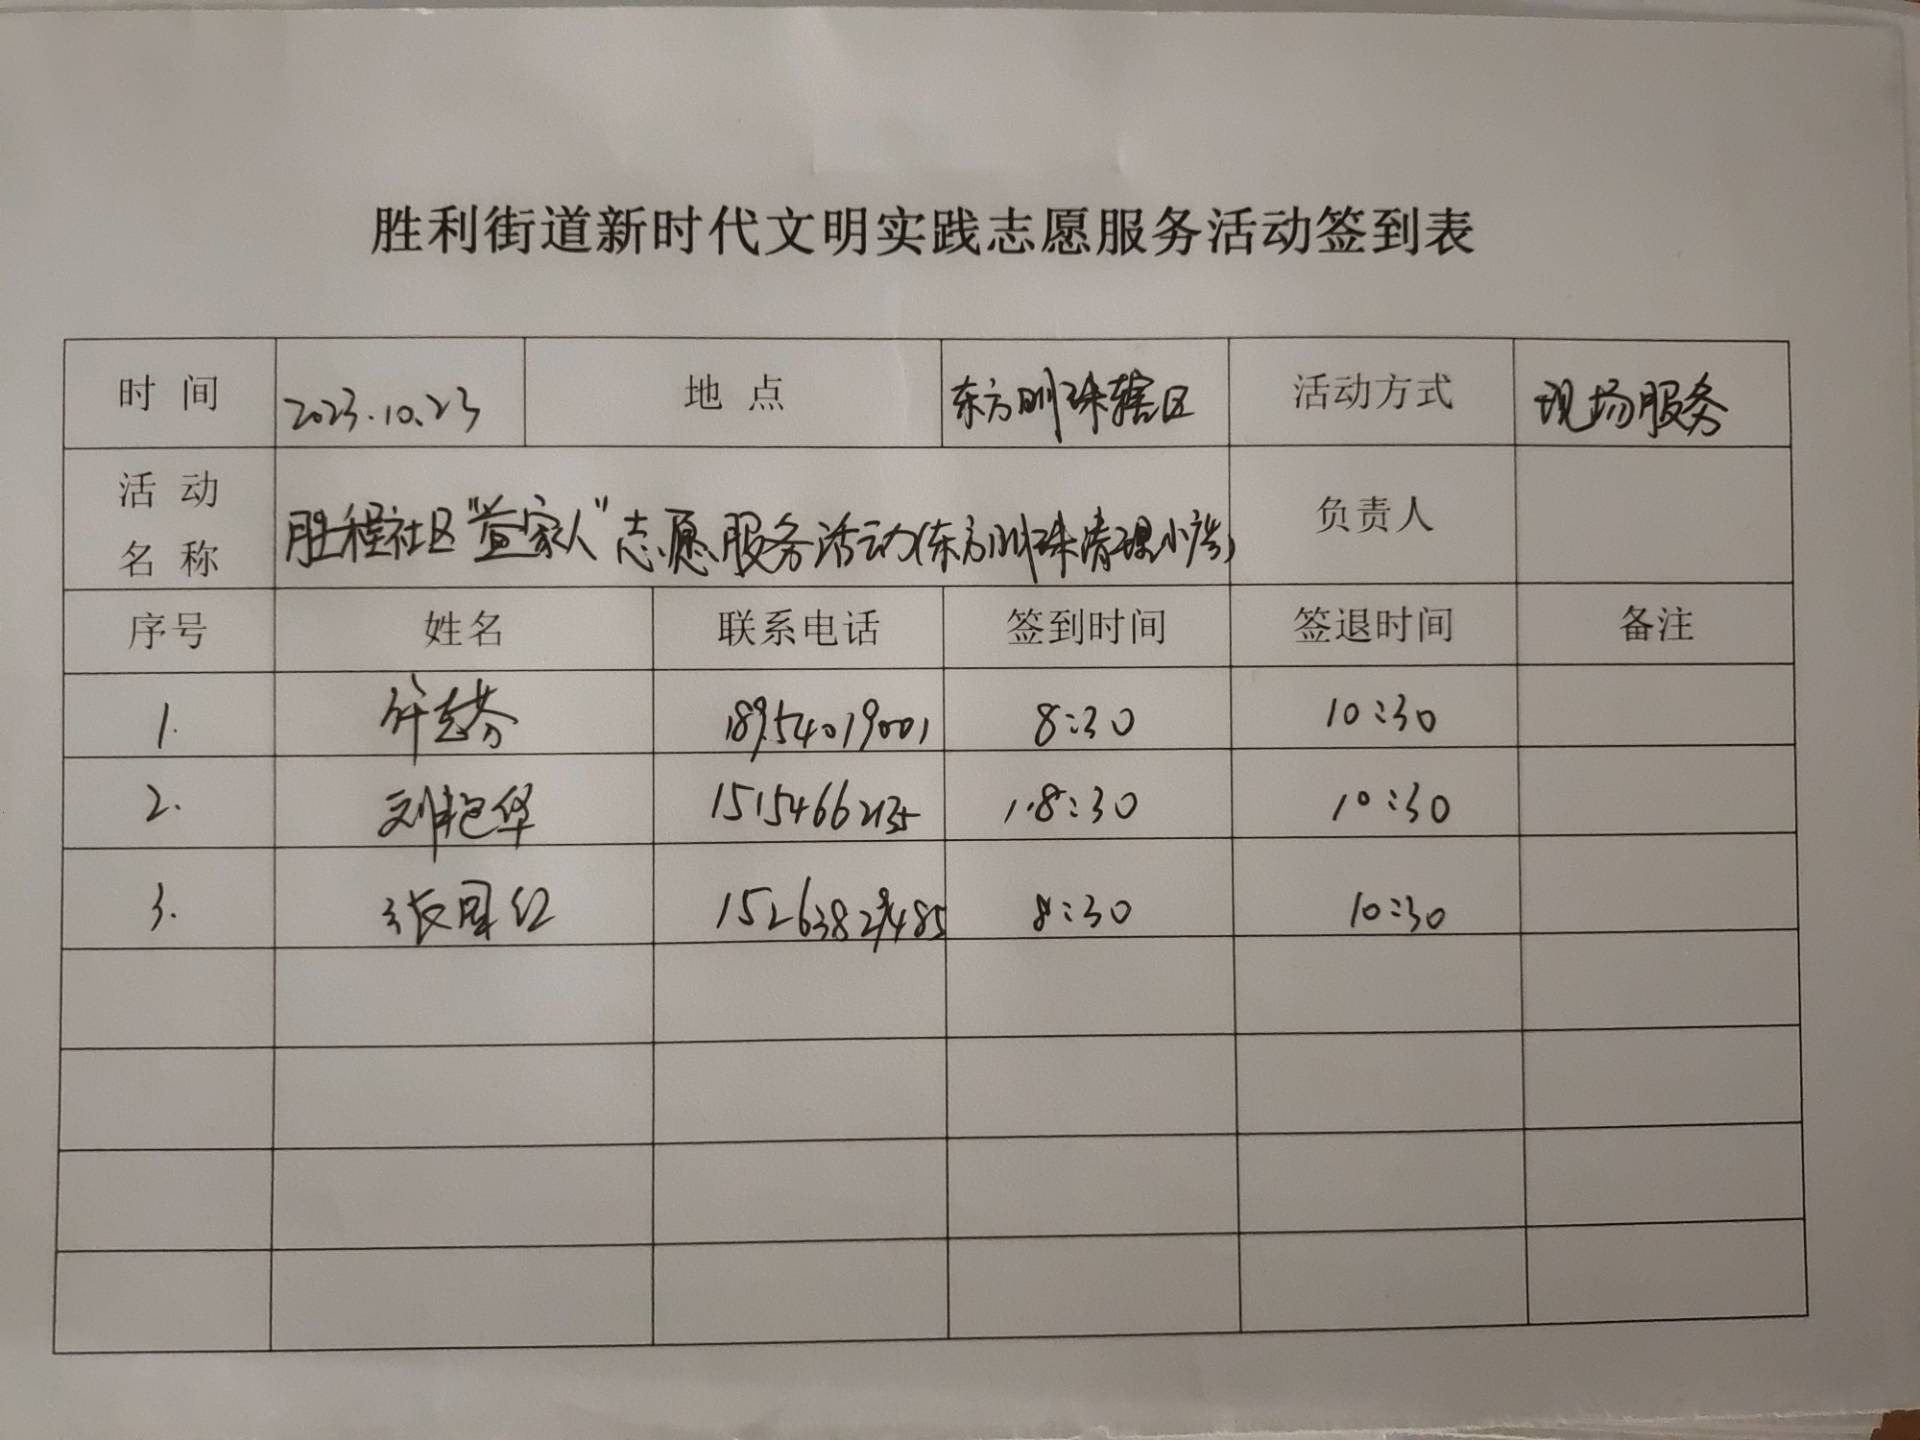 胜利街道新时代文明实践志愿服务活动签到表
时 间 2023.10.23 地 点 东方明珠辖区 活动方式 现场服务
活 动 名 称 胜程社区"益家人"志愿服务活动(东方明珠清理小广告) 负责人
序号 姓名 联系电话 签到时间 签退时间 备注
1. 18954019001 8:30 10:30
2. 刘艳华 8:30 10:30
3. 张国红 15263829485 8:30 10:30